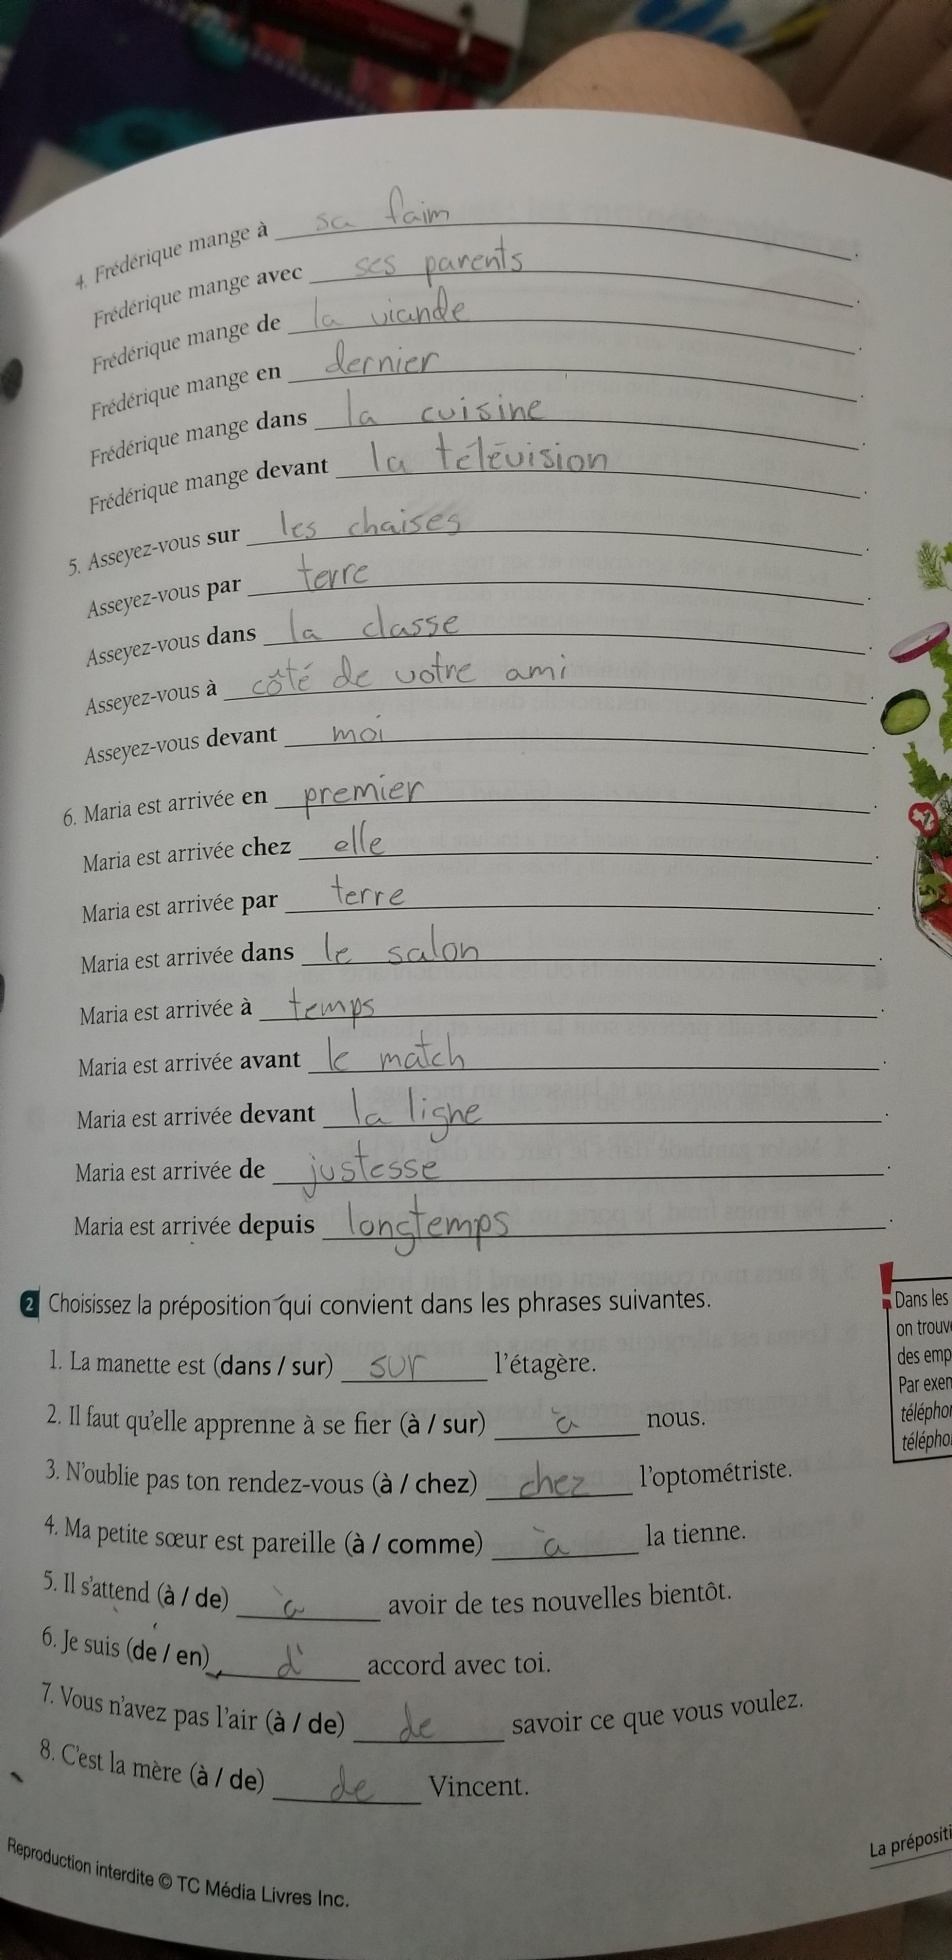 4. Frédérique mange à sa faim.
Frédérique mange avec ses parents.
Frédérique mange de la viande.
Frédérique mange en dernier.
Frédérique mange dans la cuisine.
Frédérique mange devant la télévision.
5. Asseyez-vous sur les chaises.
Asseyez-vous par terre.
Asseyez-vous dans la classe.
Asseyez-vous à côté de votre ami.
Asseyez-vous devant moi.
6. Maria est arrivée en premier.
Maria est arrivée chez elle.
Maria est arrivée par terre.
Maria est arrivée dans le salon.
Maria est arrivée à temps.
Maria est arrivée avant le match.
Maria est arrivée devant la ligne.
Maria est arrivée de justesse.
Maria est arrivée depuis longtemps.
2 Choisissez la préposition qui convient dans les phrases suivantes.
1. La manette est (dans / sur) sur l'étagère.
2. Il faut qu'elle apprenne à se fier (à / sur) à nous.
3. N'oublie pas ton rendez-vous (à / chez) chez l'optométriste.
4. Ma petite sœur est pareille (à / comme) à la tienne.
5. Il s'attend (à / de) à avoir de tes nouvelles bientôt.
6. Je suis (de / en) d' accord avec toi.
7. Vous n'avez pas l'air (à / de) de savoir ce que vous voulez.
8. C'est la mère (à / de) de Vincent.
! Dans les
on trouv
des emp
Par exem
télépho
télépho
La prépositi
Reproduction interdite © TC Média Livres Inc.